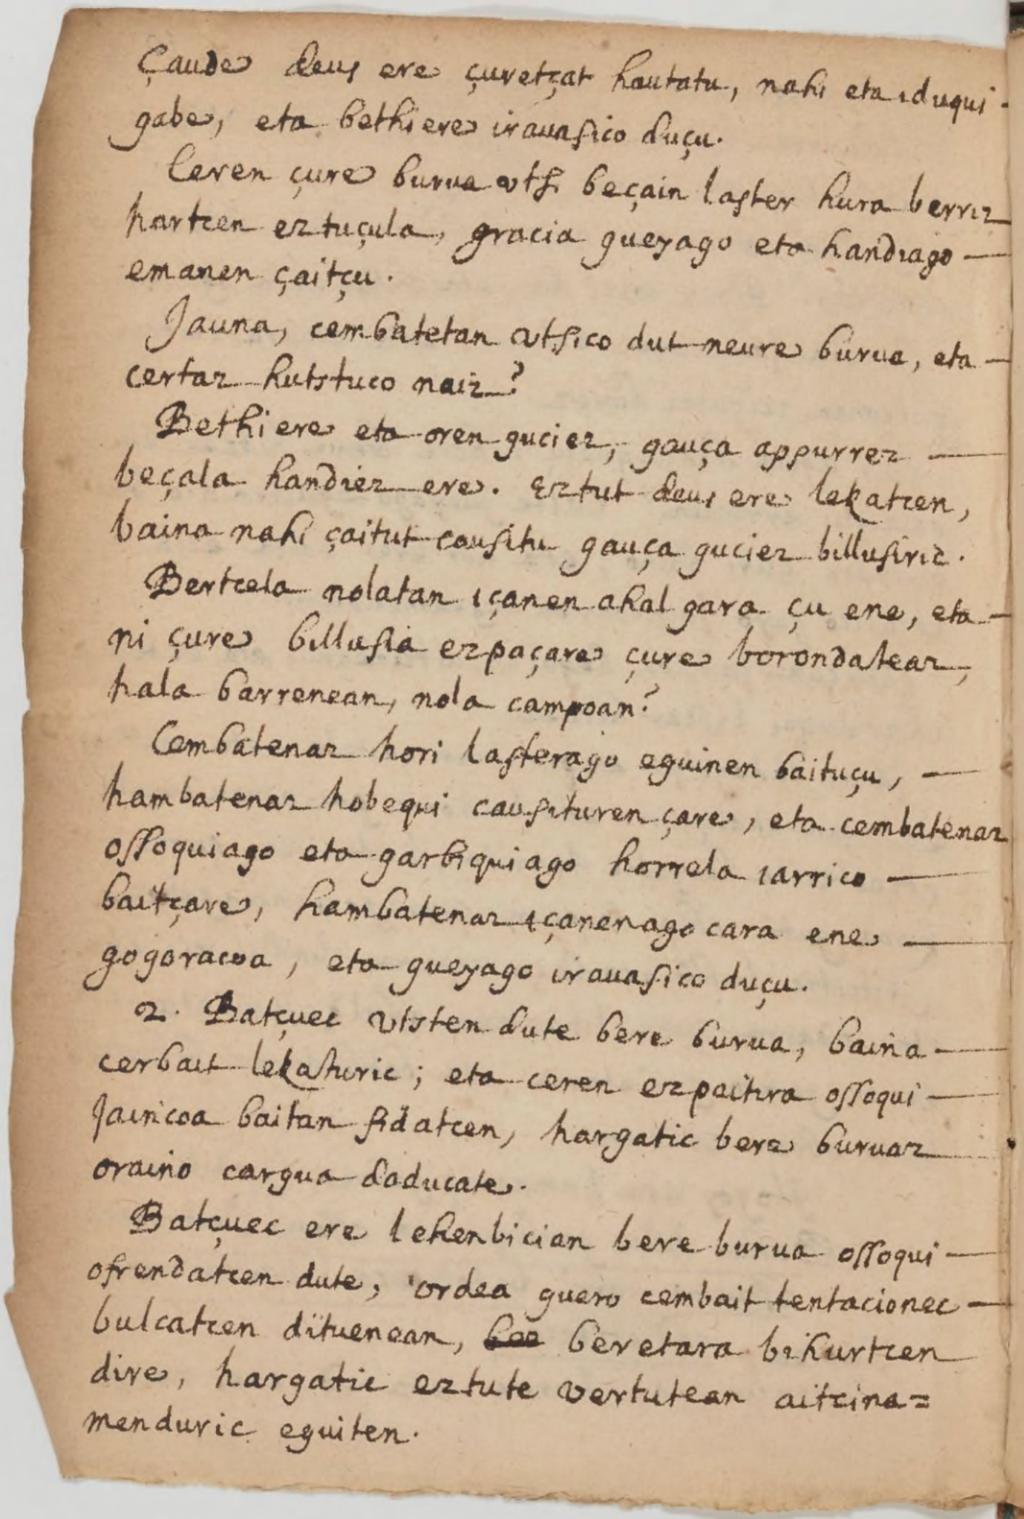 Çaude deus ere çuretçat hautatu, nahi eta iduqui
gabe, eta bethiere irauasico duçu.
Ceren çure burua vtsi beçain laster hura berriz
hartcen eztuçula, gracia gueyago eta handiago
emanen çaitçu.
Jauna, cembatetan vtsico dut neure burua, eta
certaz hutstuco naiz?
Bethiere eta oren guciez, gauça appurrez
beçala handiez ere. Eztut deus ere lekatcen,
baina nahi çaitut causitu gauça guciez billusiric.
Bertcela nolatan içanen ahal gara çu ene, eta
ni çure billusia ezpaçare çure borondateaz,
hala barrenean, nola campoan?
Cembatenaz hori lasterago eguinen baituçu,
hambatenaz hobequi causituren çare, eta cembatenaz
ossoquiago eta garbiquiago horrela iarrico
baitçare, hambatenaz içanenago cara ene
gogoracoa, eta gueyago irauasico duçu.
2. Batçuec vtsten dute bere burua, baina
cerbait lekaturic; eta ceren ezpaitira ossoqui
Jaincoa baitan fidatcen, hargatic bere buruaz
oraino cargua daducate.
Batçuec ere lehenbician bere burua ossoqui
ofrendatcen dute, ordea guero cembait tentacionec
bulcatcen dituenean, beretara bihurtcen
dire, hargatic eztute vertutean aitcina=
menduric eguiten.